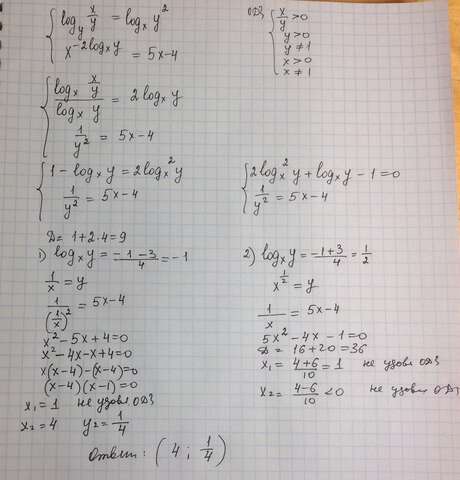 { log_y x/y = log_x y²
x^(-2log_x y) = 5x-4
ОДЗ { x/y > 0
y > 0
y ≠ 1
x > 0
x ≠ 1
{ log_x x/y / log_x y = 2log_x y
1/y² = 5x-4
{ 1 - log_x y = 2log_x² y
1/y² = 5x-4
{ 2log_x² y + log_x y - 1 = 0
1/y² = 5x-4
D = 1+2·4=9
1) log_x y = (-1-3)/4 = -1
1/x = y
1/(1/x)² = 5x-4
x²-5x+4=0
x²-4x-x+4=0
x(x-4)-(x-4)=0
(x-4)(x-1)=0
x₁ = 1 не удовл ОДЗ
x₂ = 4 y₂ = 1/4
2) log_x y = (-1+3)/4 = 1/2
x^(1/2) = y
1/x = 5x-4
5x²-4x-1=0
D = 16+20=36
x₁ = (4+6)/10 = 1 не удовл ОДЗ
x₂ = (4-6)/10 < 0 не удовл ОДЗ
Ответ: (4; 1/4)